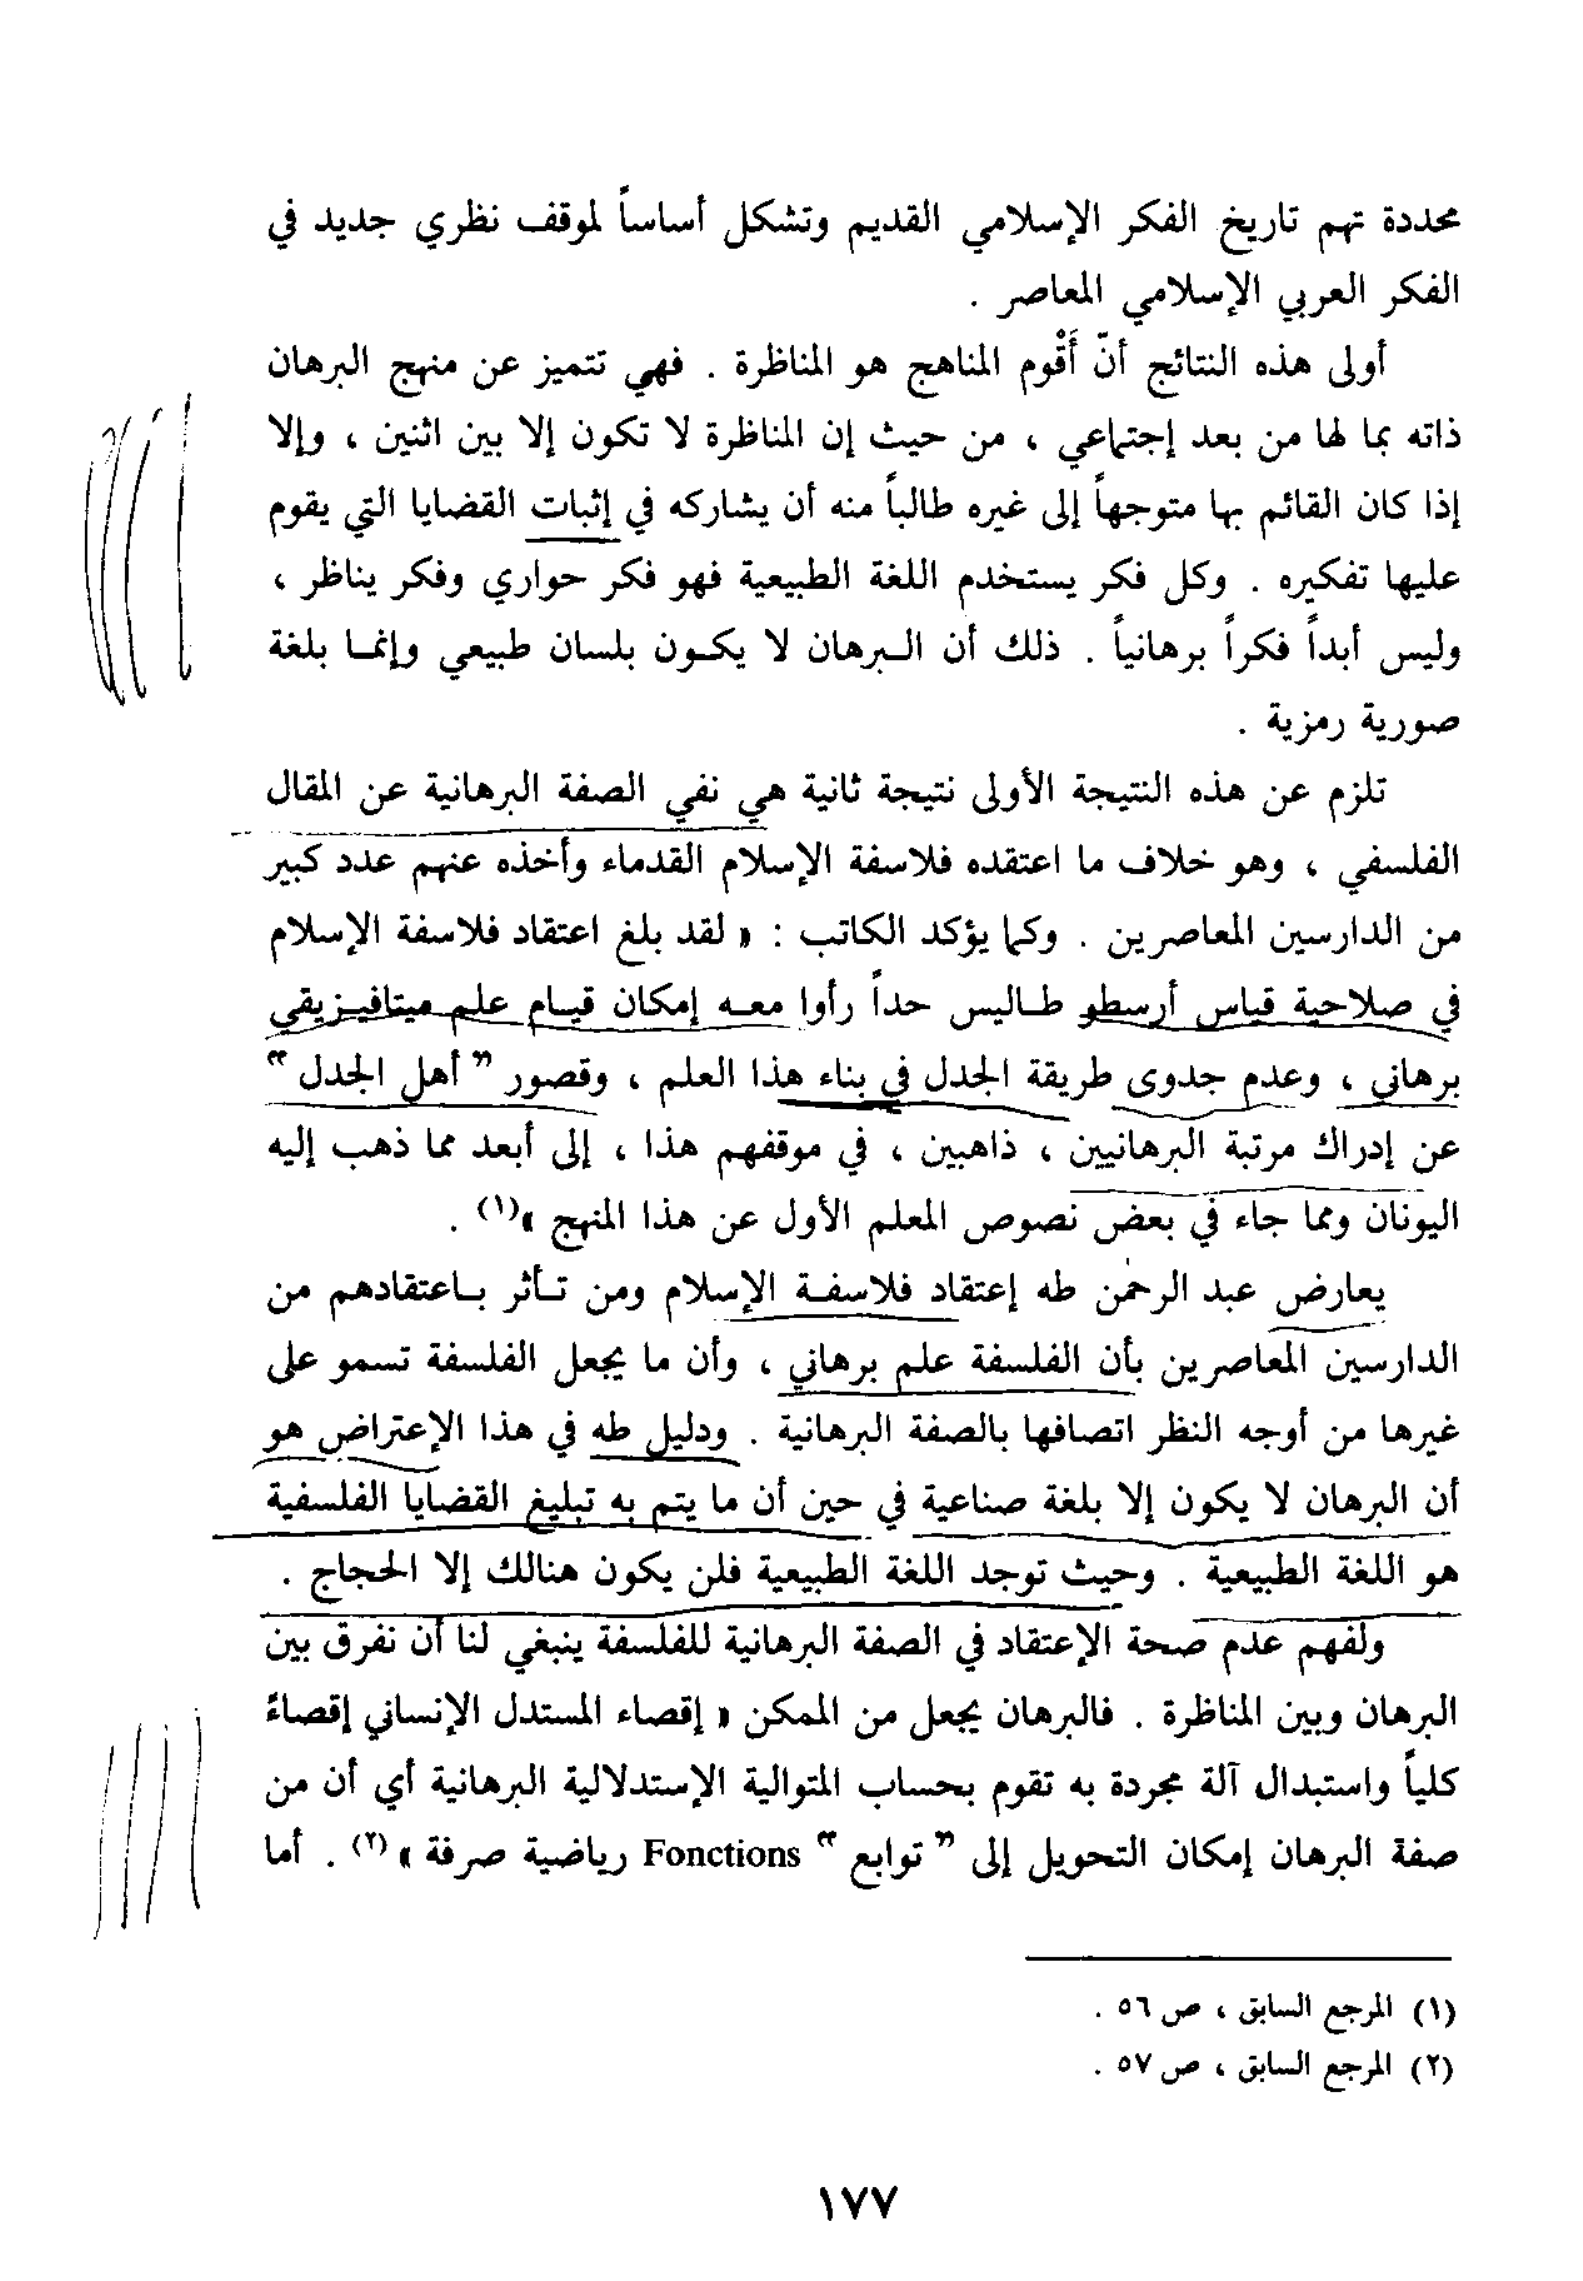 محددة تهم تاريخ الفكر الإسلامي القديم وتشكل أساساً لموقف نظري جديد في
الفكر العربي الإسلامي المعاصر .
أولى هذه النتائج أنّ أَقْوم المناهج هو المناظرة . فهي تتميز عن منهج البرهان
ذاته بما لها من بعد إجتماعي ، من حيث إن المناظرة لا تكون إلا بين اثنين ، وإلا
إذا كان القائم بها متوجهاً إلى غيره طالباً منه أن يشاركه في إثبات القضايا التي يقوم
عليها تفكيره . وكل فكر يستخدم اللغة الطبيعية فهو فكر حواري وفكر يناظر ،
وليس أبداً فكراً برهانياً . ذلك أن الـبرهان لا يكـون بلسان طبيعي وإنمـا بلغة
صورية رمزية .
تلزم عن هذه النتيجة الأولى نتيجة ثانية هي نفي الصفة البرهانية عن المقال
الفلسفي ، وهو خلاف ما اعتقده فلاسفة الإسلام القدماء وأخذه عنهم عدد كبير
من الدارسين المعاصرين . وكما يؤكد الكاتب : « لقد بلغ اعتقاد فلاسفة الإسلام
في صلاحية قياس أرسطو طـاليس حداً رأوا معـه إمكان قيـام علم ميتافيـزيقي
برهاني ، وعدم جدوى طريقة الجدل في بناء هذا العلم ، وقصور ” أهل الجدل “
عن إدراك مرتبة البرهانيين ، ذاهبين ، في موقفهم هذا ، إلى أبعد مما ذهب إليه
اليونان ومما جاء في بعض نصوص المعلم الأول عن هذا المنهج »(١) .
يعارض عبد الرحمٰن طه إعتقاد فلاسفـة الإسلام ومن تـأثر بـاعتقادهم من
الدارسين المعاصرين بأن الفلسفة علم برهاني ، وأن ما يجعل الفلسفة تسمو على
غيرها من أوجه النظر اتصافها بالصفة البرهانية . ودليل طه في هذا الإعتراض هو
أن البرهان لا يكون إلا بلغة صناعية في حين أن ما يتم به تبليغ القضايا الفلسفية
هو اللغة الطبيعية . وحيث توجد اللغة الطبيعية فلن يكون هنالك إلا الحجاج .
ولفهم عدم صحة الإعتقاد في الصفة البرهانية للفلسفة ينبغي لنا أن نفرق بين
البرهان وبين المناظرة . فالبرهان يجعل من الممكن « إقصاء المستدل الإنساني إقصاءً
كلياً واستبدال آلة مجردة به تقوم بحساب المتوالية الإستدلالية البرهانية أي أن من
صفة البرهان إمكان التحويل إلى ” توابع “ Fonctions رياضية صرفة » (٢) . أما
(١) المرجع السابق ، ص ٥٦ .
(٢) المرجع السابق ، ص ٥٧ .
١٧٧